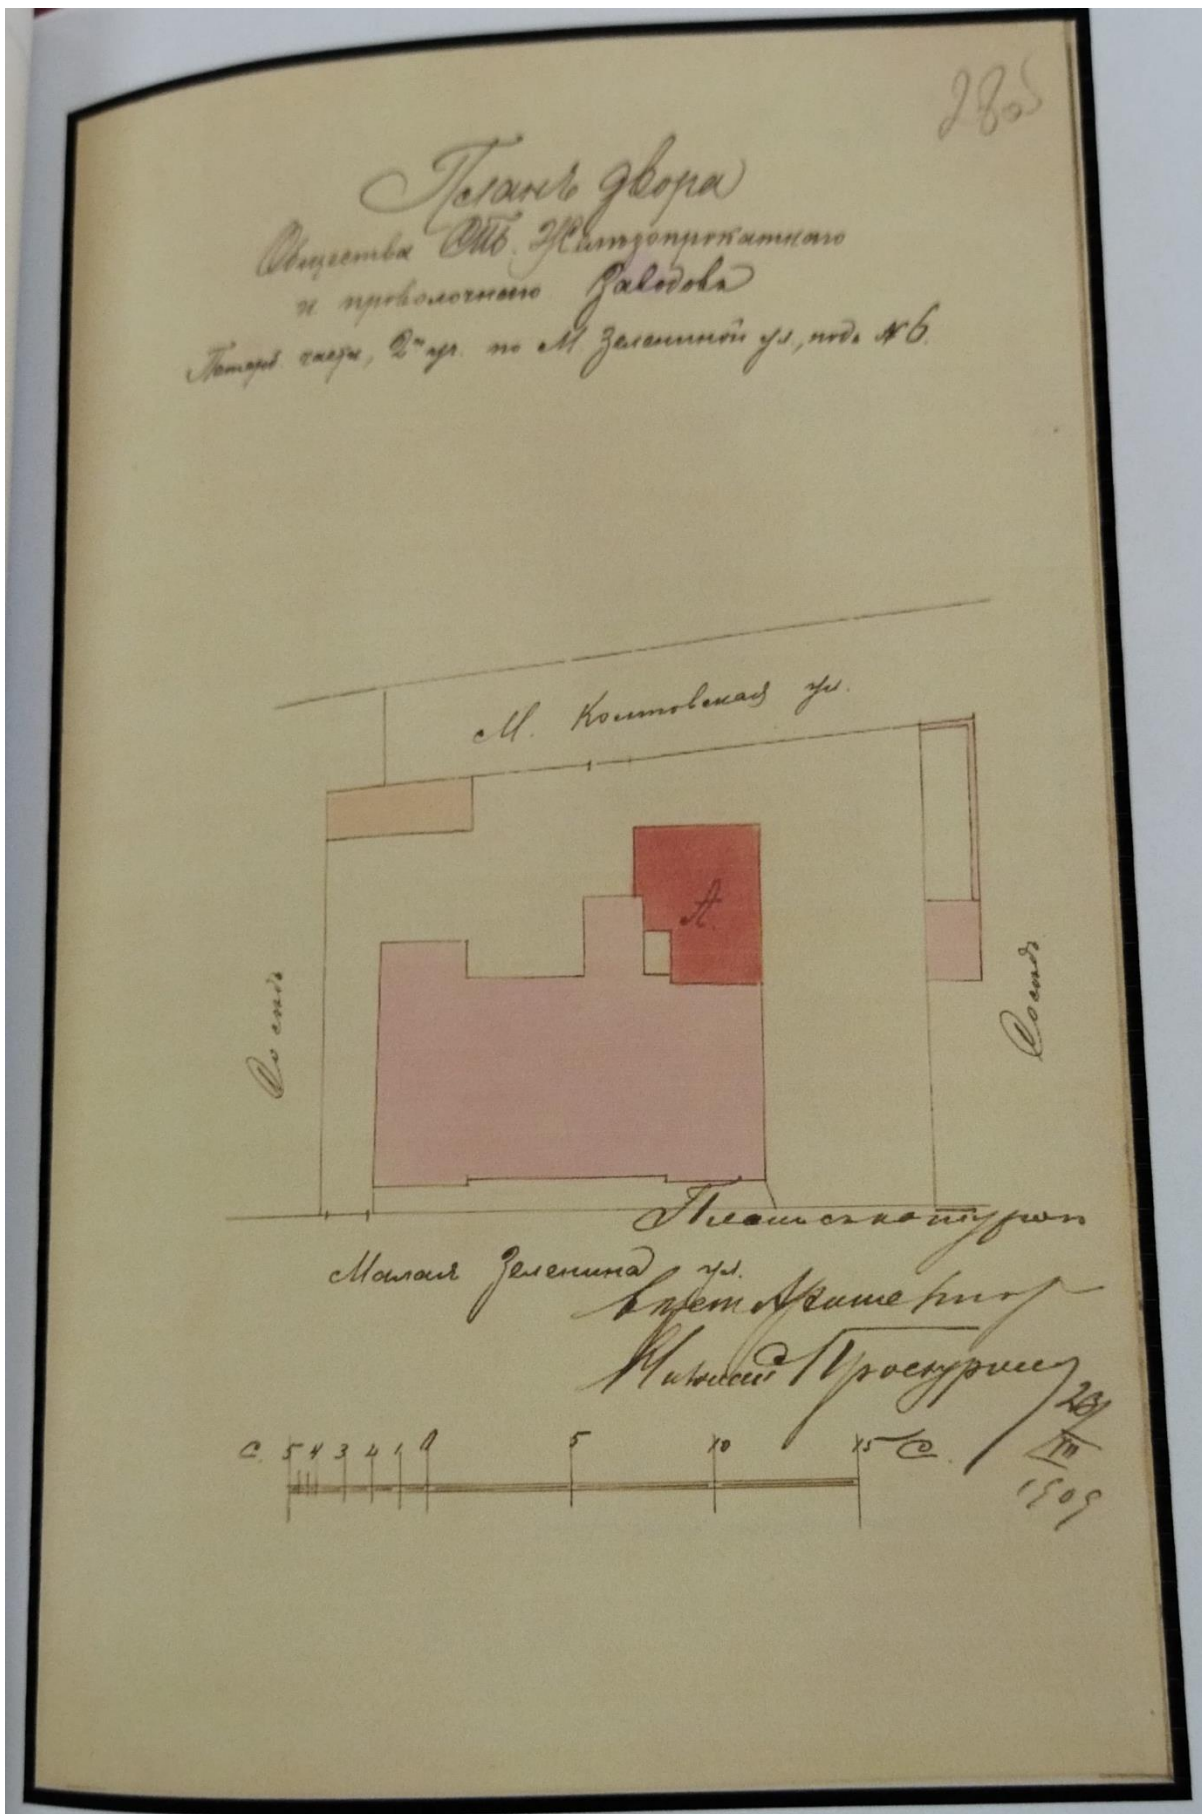 280
Планъ двора
Общества СПБ. Железопрокатнаго
и проволочнаго Заводовъ
Петерб. части, 2го уч. по М. Зелениной ул., подъ № 6.
М. Колтовская ул.
А.
Сосѣдъ
Сосѣдъ
Планъ съ натурою
Малая Зеленина ул.
вѣренъ Архитекторъ
Проскурнинъ
23
III
1909
С. 5 4 3 2 1 0 5 10 15 С.